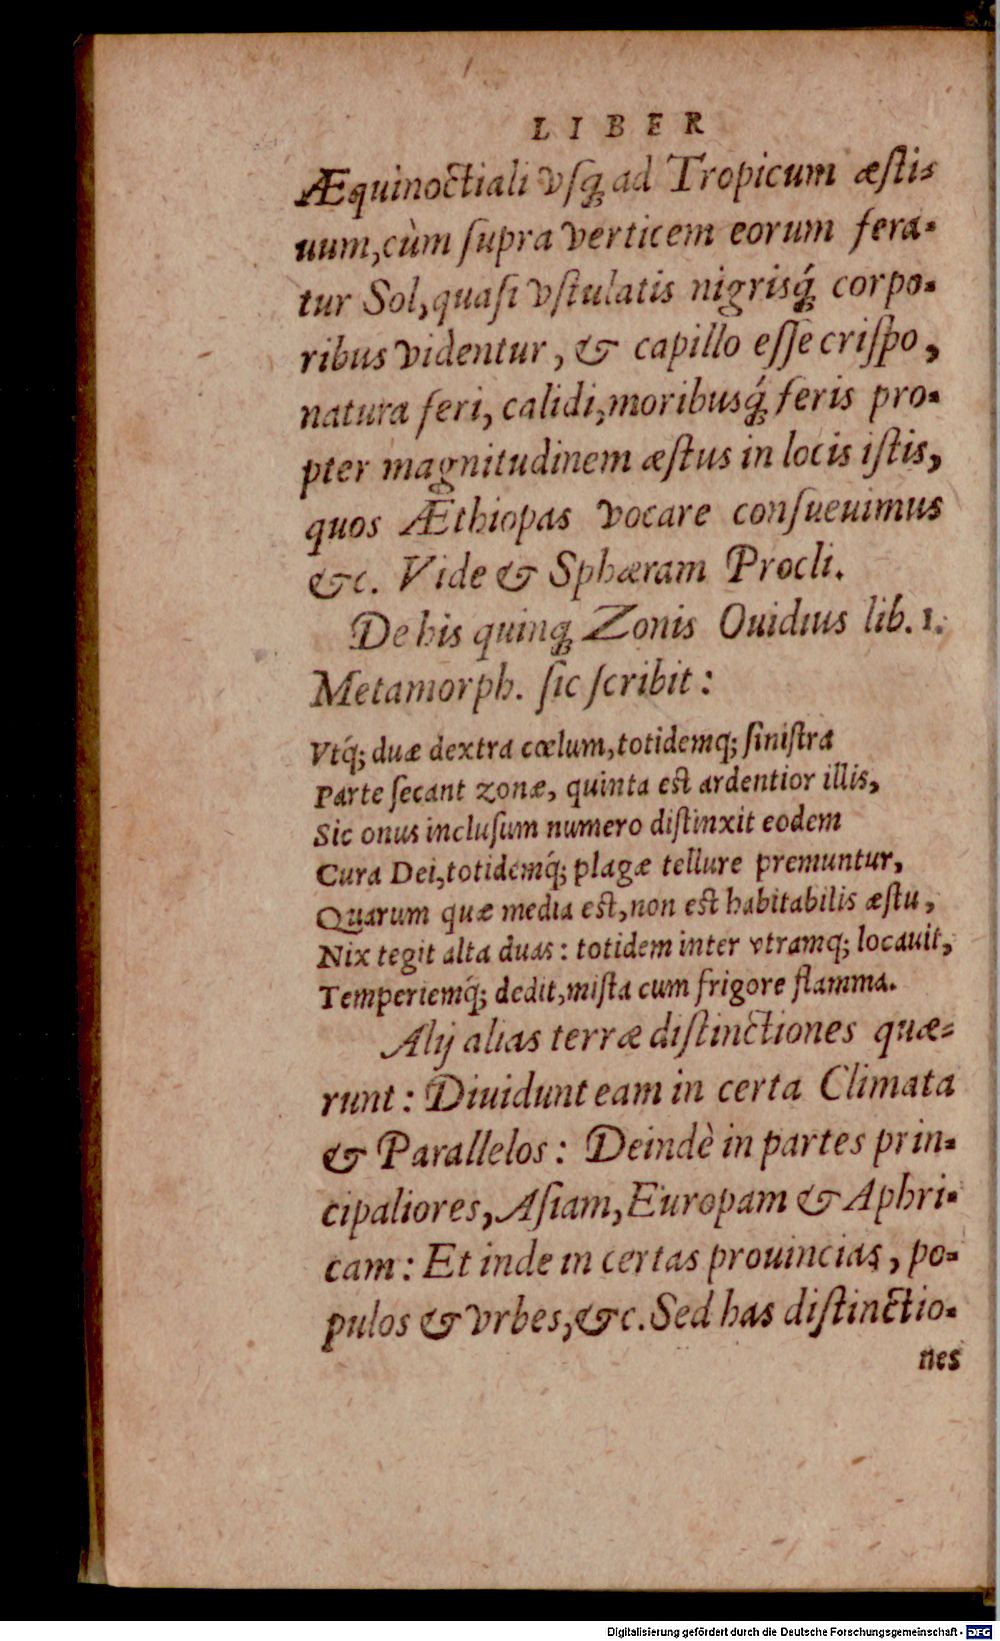 LIBER
Æquinoctiali vſq́ ad Tropicum æſti-
uum, cùm ſupra verticem eorum fera-
tur Sol, quaſi vſtulatis nigrisq́ corpo-
ribus videntur, & capillo eſſe criſpo,
natura feri, calidi, moribusq́ feris pro-
pter magnitudinem æſtus in locis iſtis,
quos Æthiopas vocare conſueuimus
&c. Vide & Sphæram Procli.
De his quinq́ Zonis Ouidius lib. 1.
Metamorph. ſic ſcribit:
Vtq́; duæ dextra cœlum, totidemq; ſiniſtra
Parte ſecant zonæ, quinta eſt ardentior illis,
Sic onus incluſum numero diſtinxit eodem
Cura Dei, totidemq́; plagæ tellure premuntur,
Quarum quæ media eſt, non eſt habitabilis æſtu,
Nix tegit alta duas: totidem inter vtramq; locauit,
Temperiemq́; dedit, miſta cum frigore flamma.
Alij alias terræ diſtinctiones quæ-
runt: Diuidunt eam in certa Climata
& Parallelos: Deindè in partes prin-
cipaliores, Aſiam, Europam & Aphri-
cam: Et inde in certas prouincias, po-
pulos & vrbes, &c. Sed has diſtinctio-
nes
Digitalisierung gefördert durch die Deutsche Forschungsgemeinschaft - DFG